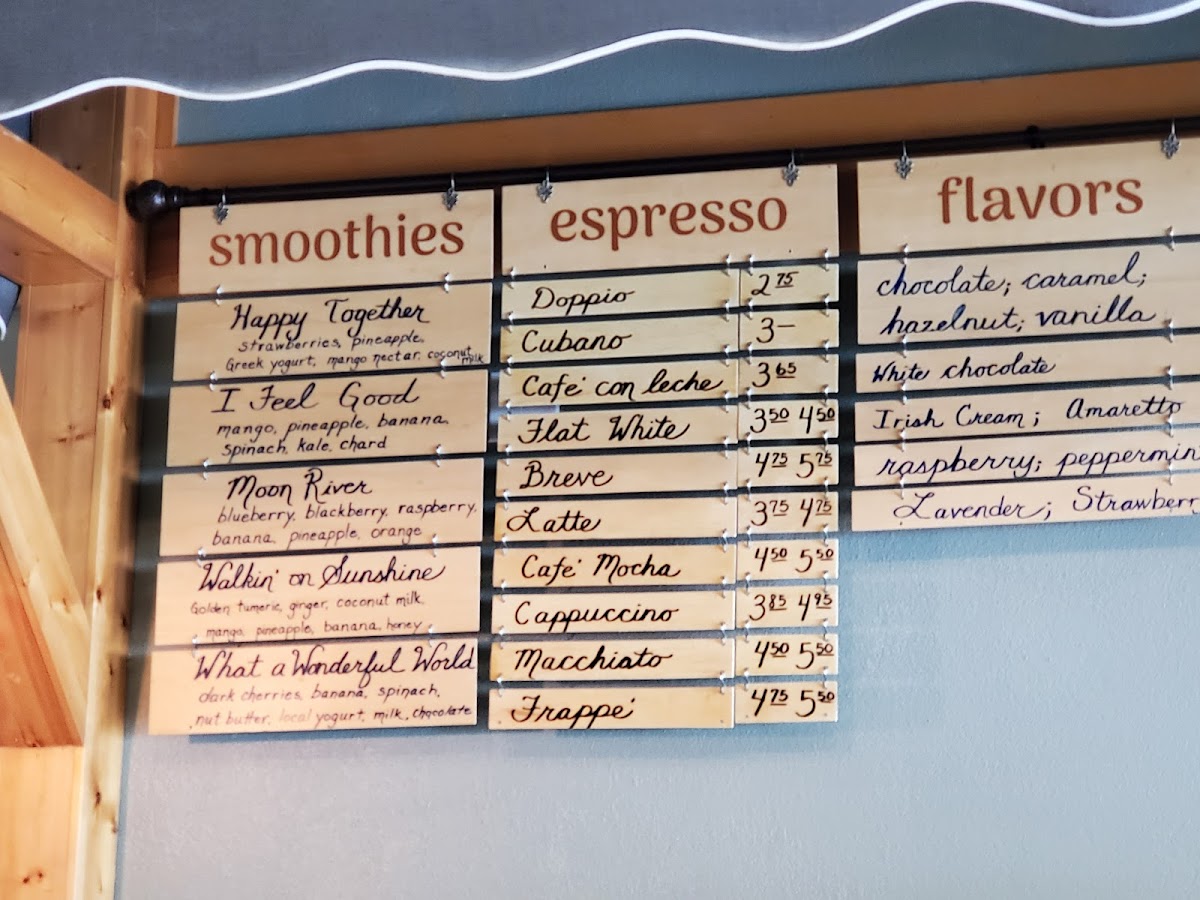 smoothies
Happy Together
strawberries, pineapple,
Greek yogurt, mango nectar, coconut milk
I Feel Good
mango, pineapple, banana,
spinach, kale, chard
Moon River
blueberry, blackberry, raspberry,
banana, pineapple, orange
Walkin' on Sunshine
Golden tumeric, ginger, coconut milk,
mango, pineapple, banana, honey
What a Wonderful World
dark cherries, banana, spinach,
nut butter, local yogurt, milk, chocolate
espresso
Doppio 2 75
Cubano 3—
Cafe' con leche 3 65
Flat White 3 50 4 50
Breve 4 75 5 75
Latte 3 75 4 75
Cafe' Mocha 4 50 5 50
Cappuccino 3 85 4 95
Macchiato 4 50 5 50
Frappe' 4 75 5 50
flavors
chocolate; caramel;
hazelnut; vanilla
White chocolate
Irish Cream; Amaretto
raspberry; peppermin
Lavender; Strawberr